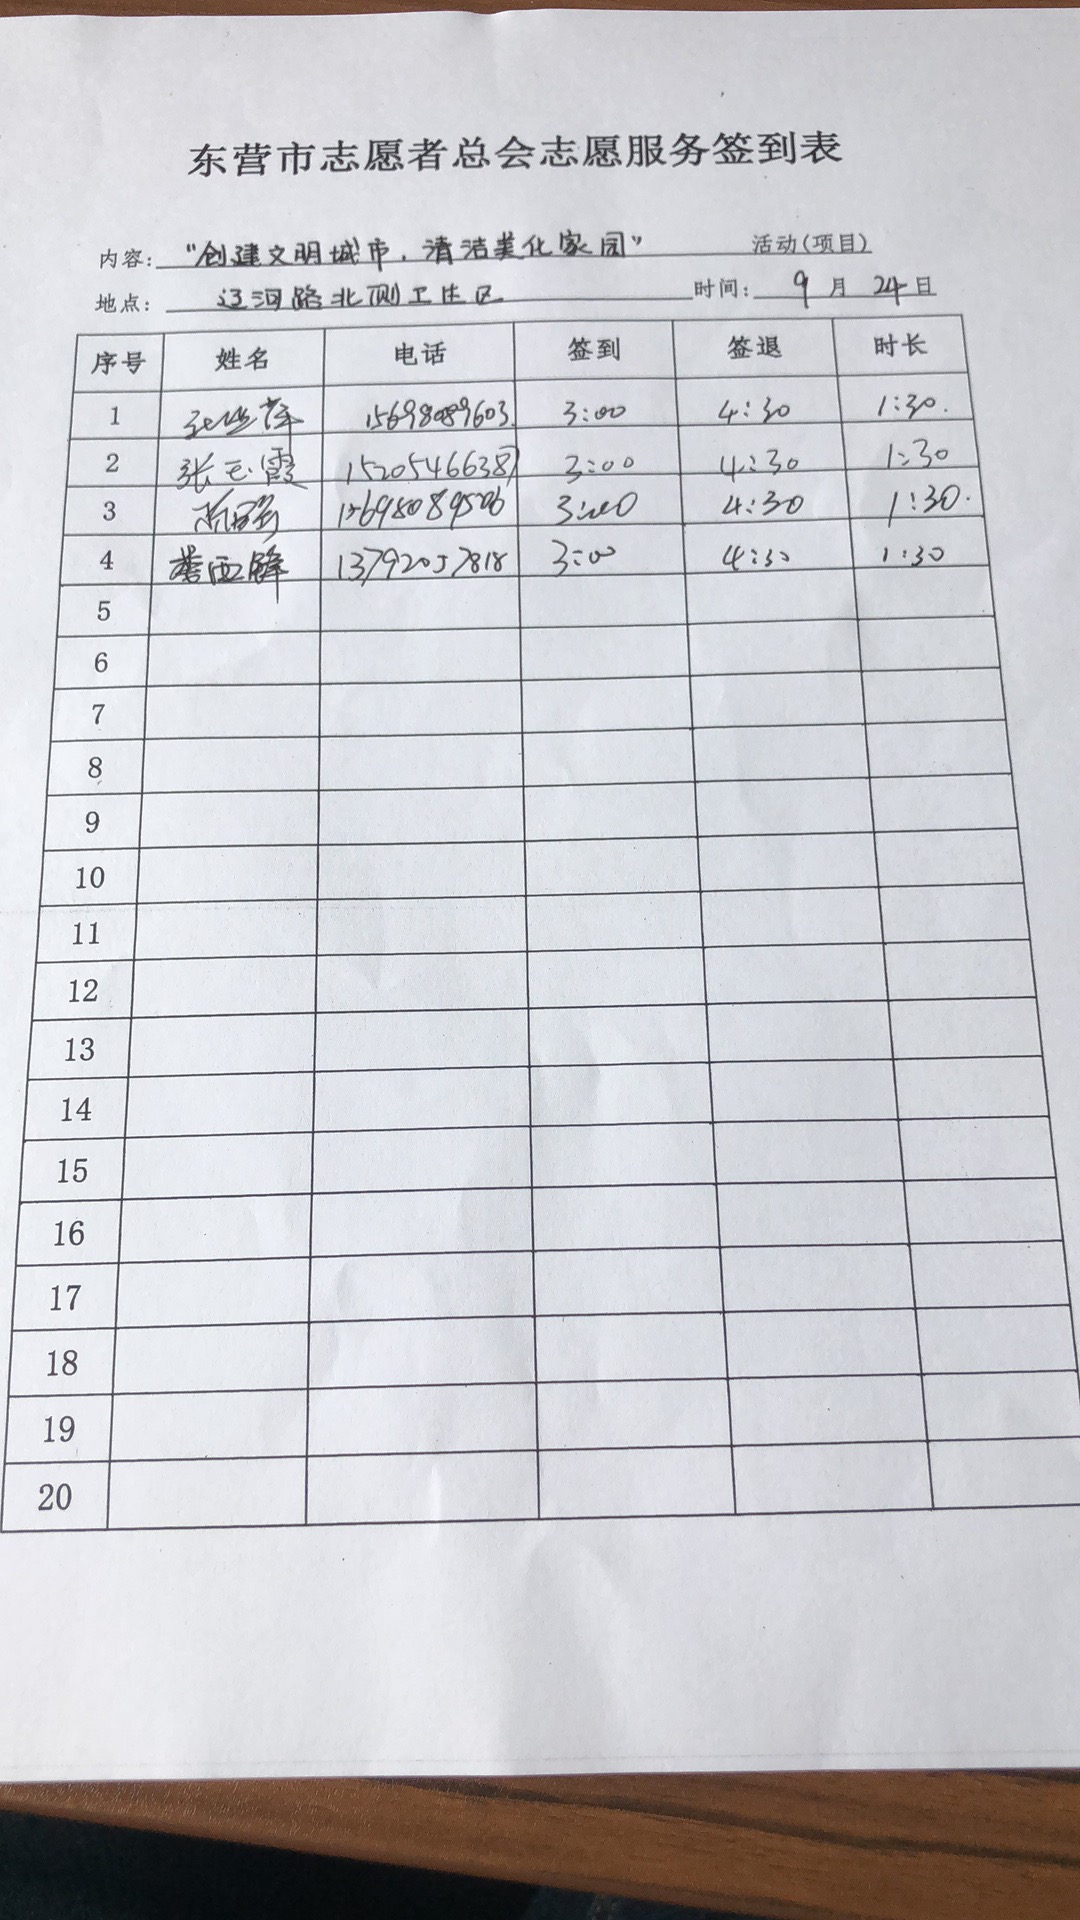 东营市志愿者总会志愿服务签到表
内容："创建文明城市，清洁美化家园" 活动(项目)
地点：辽河路北侧卫生区 时间：9月24日
序号 姓名 电话 签到 签退 时长
1 15698089603 3:00 4:30 1:30.
2 张玉霞 15205466387 3:00 4:30 1:30
3 15698089506 3:00 4:30 1:30.
4 13792057818 3:00 4:30 1:30
5
6
7
8
9
10
11
12
13
14
15
16
17
18
19
20